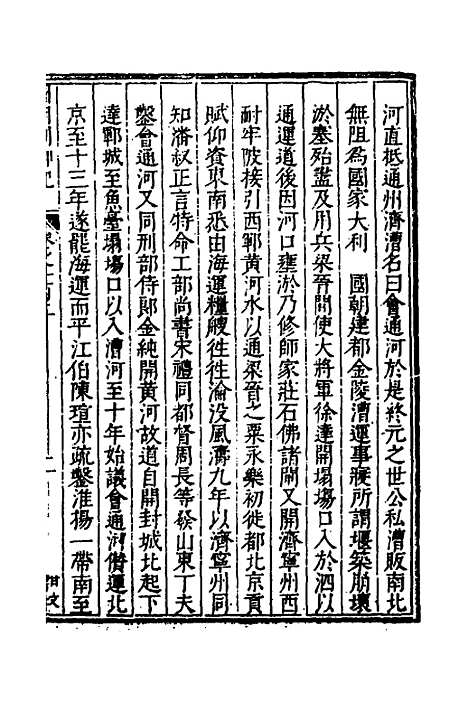 河直抵通州濟漕名曰會通河於是終元之世公私漕販南北
無阻為國家大利　國朝建都金陵漕運事寢所謂堰築崩壞
於塞殆盡及用兵梁晉間使大將軍徐達開塌場口入於泗以
通運道後因河口壅淤乃修師家莊石佛諸閘又開濟寧州西
耐牢陂接引西鄆黃河水以通梁晉之粟永樂初徙都北京貢
賦仰資東南悉由海運糧艘徃徃淪没風濤九年以濟寧州同
知潘叔正言特命工部尚書宋禮同都督周長等發山東丁夫
鑿會通河又同刑部侍郎金純開黃河故道自開封城北起下
達鄆城至魚臺塌場口以入漕河至十年始議會通河儹運北
京至十三年遂罷海運而平江伯陳瑄亦疏鑿淮揚一帶南至